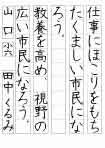 仕事にほこりをもち
たくましい市民にな
ろう。
教養を高め、視野の
広い市民になろう。
山口小六 田中くるみ